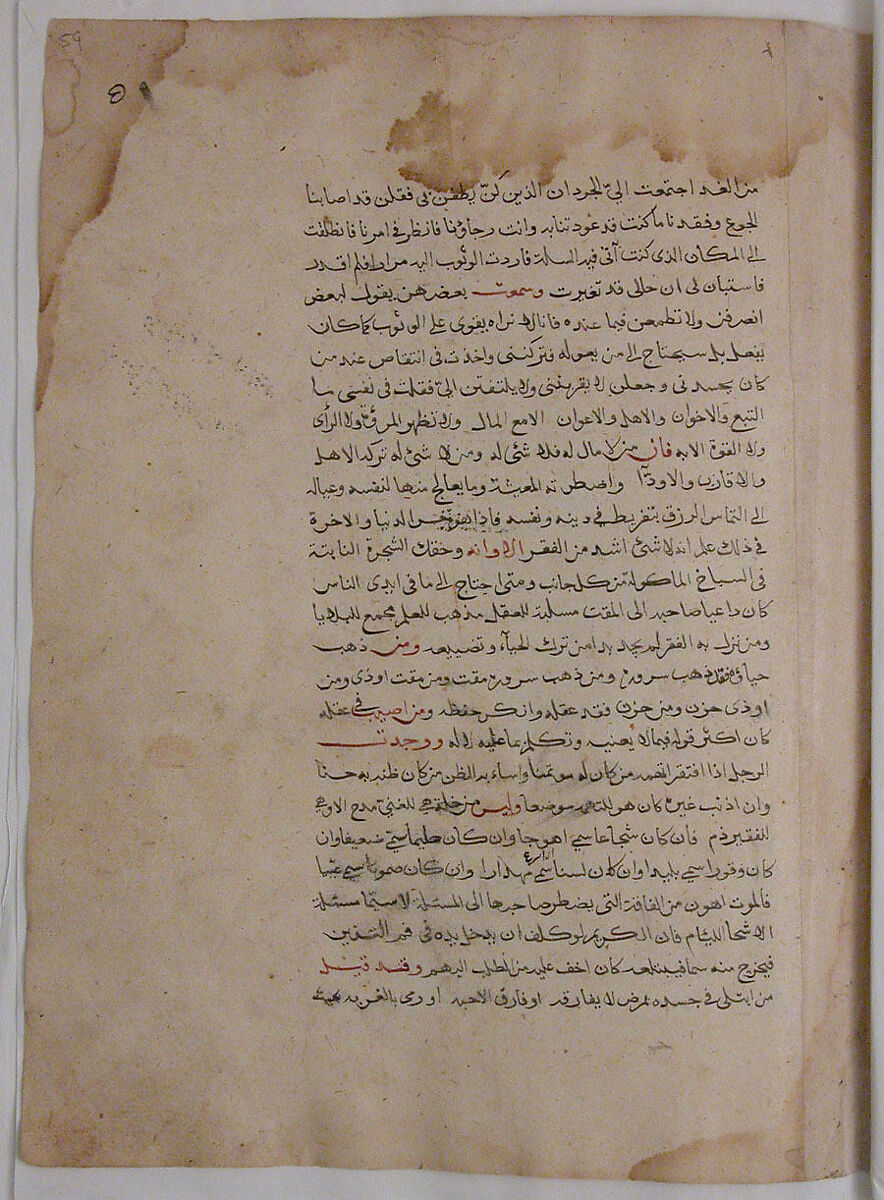 59
من الغد اجتمعت اليّ الجرذان الذين كنّ يطفن بي فقلن قد اصابنا
الجوع وفقدنا ما كنت قد عودتنا به وانت رجاؤنا فانظر في امرنا فانطلقت
الى المكان الذى كنت آتى فيه السلة فاردت الوثوب اليه مرارا فلم اقدر
فاستبان لى ان حالى قد تغيرت وسمعت بعضهن يقول لبعض
انصرفن ولا تطمعن فيما عنده فانا لا نراه يقوى على الوثوب كما كان
يفعل بل سيحتاج الى من يعوله فتركننى واخذت في انتقاص عند من
كان يحسدنى وجعلن لا يقربننى ولا يلتفتن اليّ فقلت في نفسى ما
التبع والاخوان والاهل والاعوان الا مع المال ولا تظهر المروّة ولا الرأى
ولا القوة الا به فان من لا مال له فلا شئ له ومن لا شئ له تركه الاهل
والاقارب والاودّآ واضطرته المعيشة وما يعالج منها لنفسه وعياله
الى التماس الرزق بتفريط في دينه ونفسه فاذا هو خسر الدنيا والاخرة
في ذلك علم انه لا شئ اشد من الفقر الا وانه وخقك الشجرة النابتة
في السباخ الماكولة من كل جانب ومتى احتاج الى ما في ايدى الناس
كان داعيا صاحبه الى المقت مسلبة للعقل مذهب للعلم مجمع للبلايا
ومن نزل به الفقر لم يجد بدا من ترك الحيآء وتضييعه ومن ذهب
حياؤه فقد ذهب سروره ومن ذهب سروره مقت ومن مقت اوذى ومن
اوذى حزن ومن حزن فقد عقله وانكر حفظه ومن اصيب في عقله
كان اكثر قوله فيما لا يعنيه وتكلم بما عليه لا له ووجدت
الرجل اذا افتقر اتهمه من كان له مؤتمنا واساء به الظن من كان ظنه به حسنا
وان اذنب غيره كان هو للتهمة موضعا وليس من خلة هى للغنى مدح الا وهى
للفقير ذم فان كان شجاعا سمى اهوجا وان كان حليما سمى ضعيفا وان
كان وقورا سمى بليدا وان كان لسنا سمى مهذارا وان كان صموتا سمى عيّيا
فالموت اهون من الفاقة التى يضطر صاحبها الى المسئلة لا سيّما مسئلة
الاشحا اللئام فان الكريم لو كلف ان يدخل يده في فم التنين
فيخرج منه سما فيبتلعه كان اخف عليه من الطلب اليهم وقد قيل
من ابتلى في جسده بمرض لا يفارقه او فارق الاحبه او رمى بالغربه بحيث